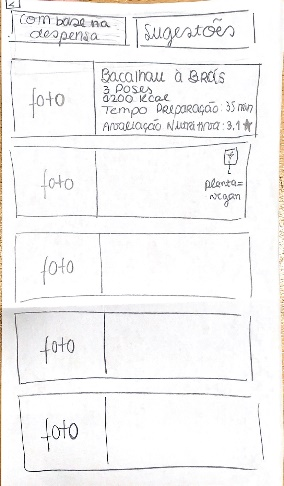 2
com base na
despensa
Sugestões
foto
Bacalhau à BRáS
3 Poses
1200 Kcal
Tempo Preparação: 35 min
Avaliação Nutritiva: 3,1 ★
foto
planta=
vegan
foto
foto
foto